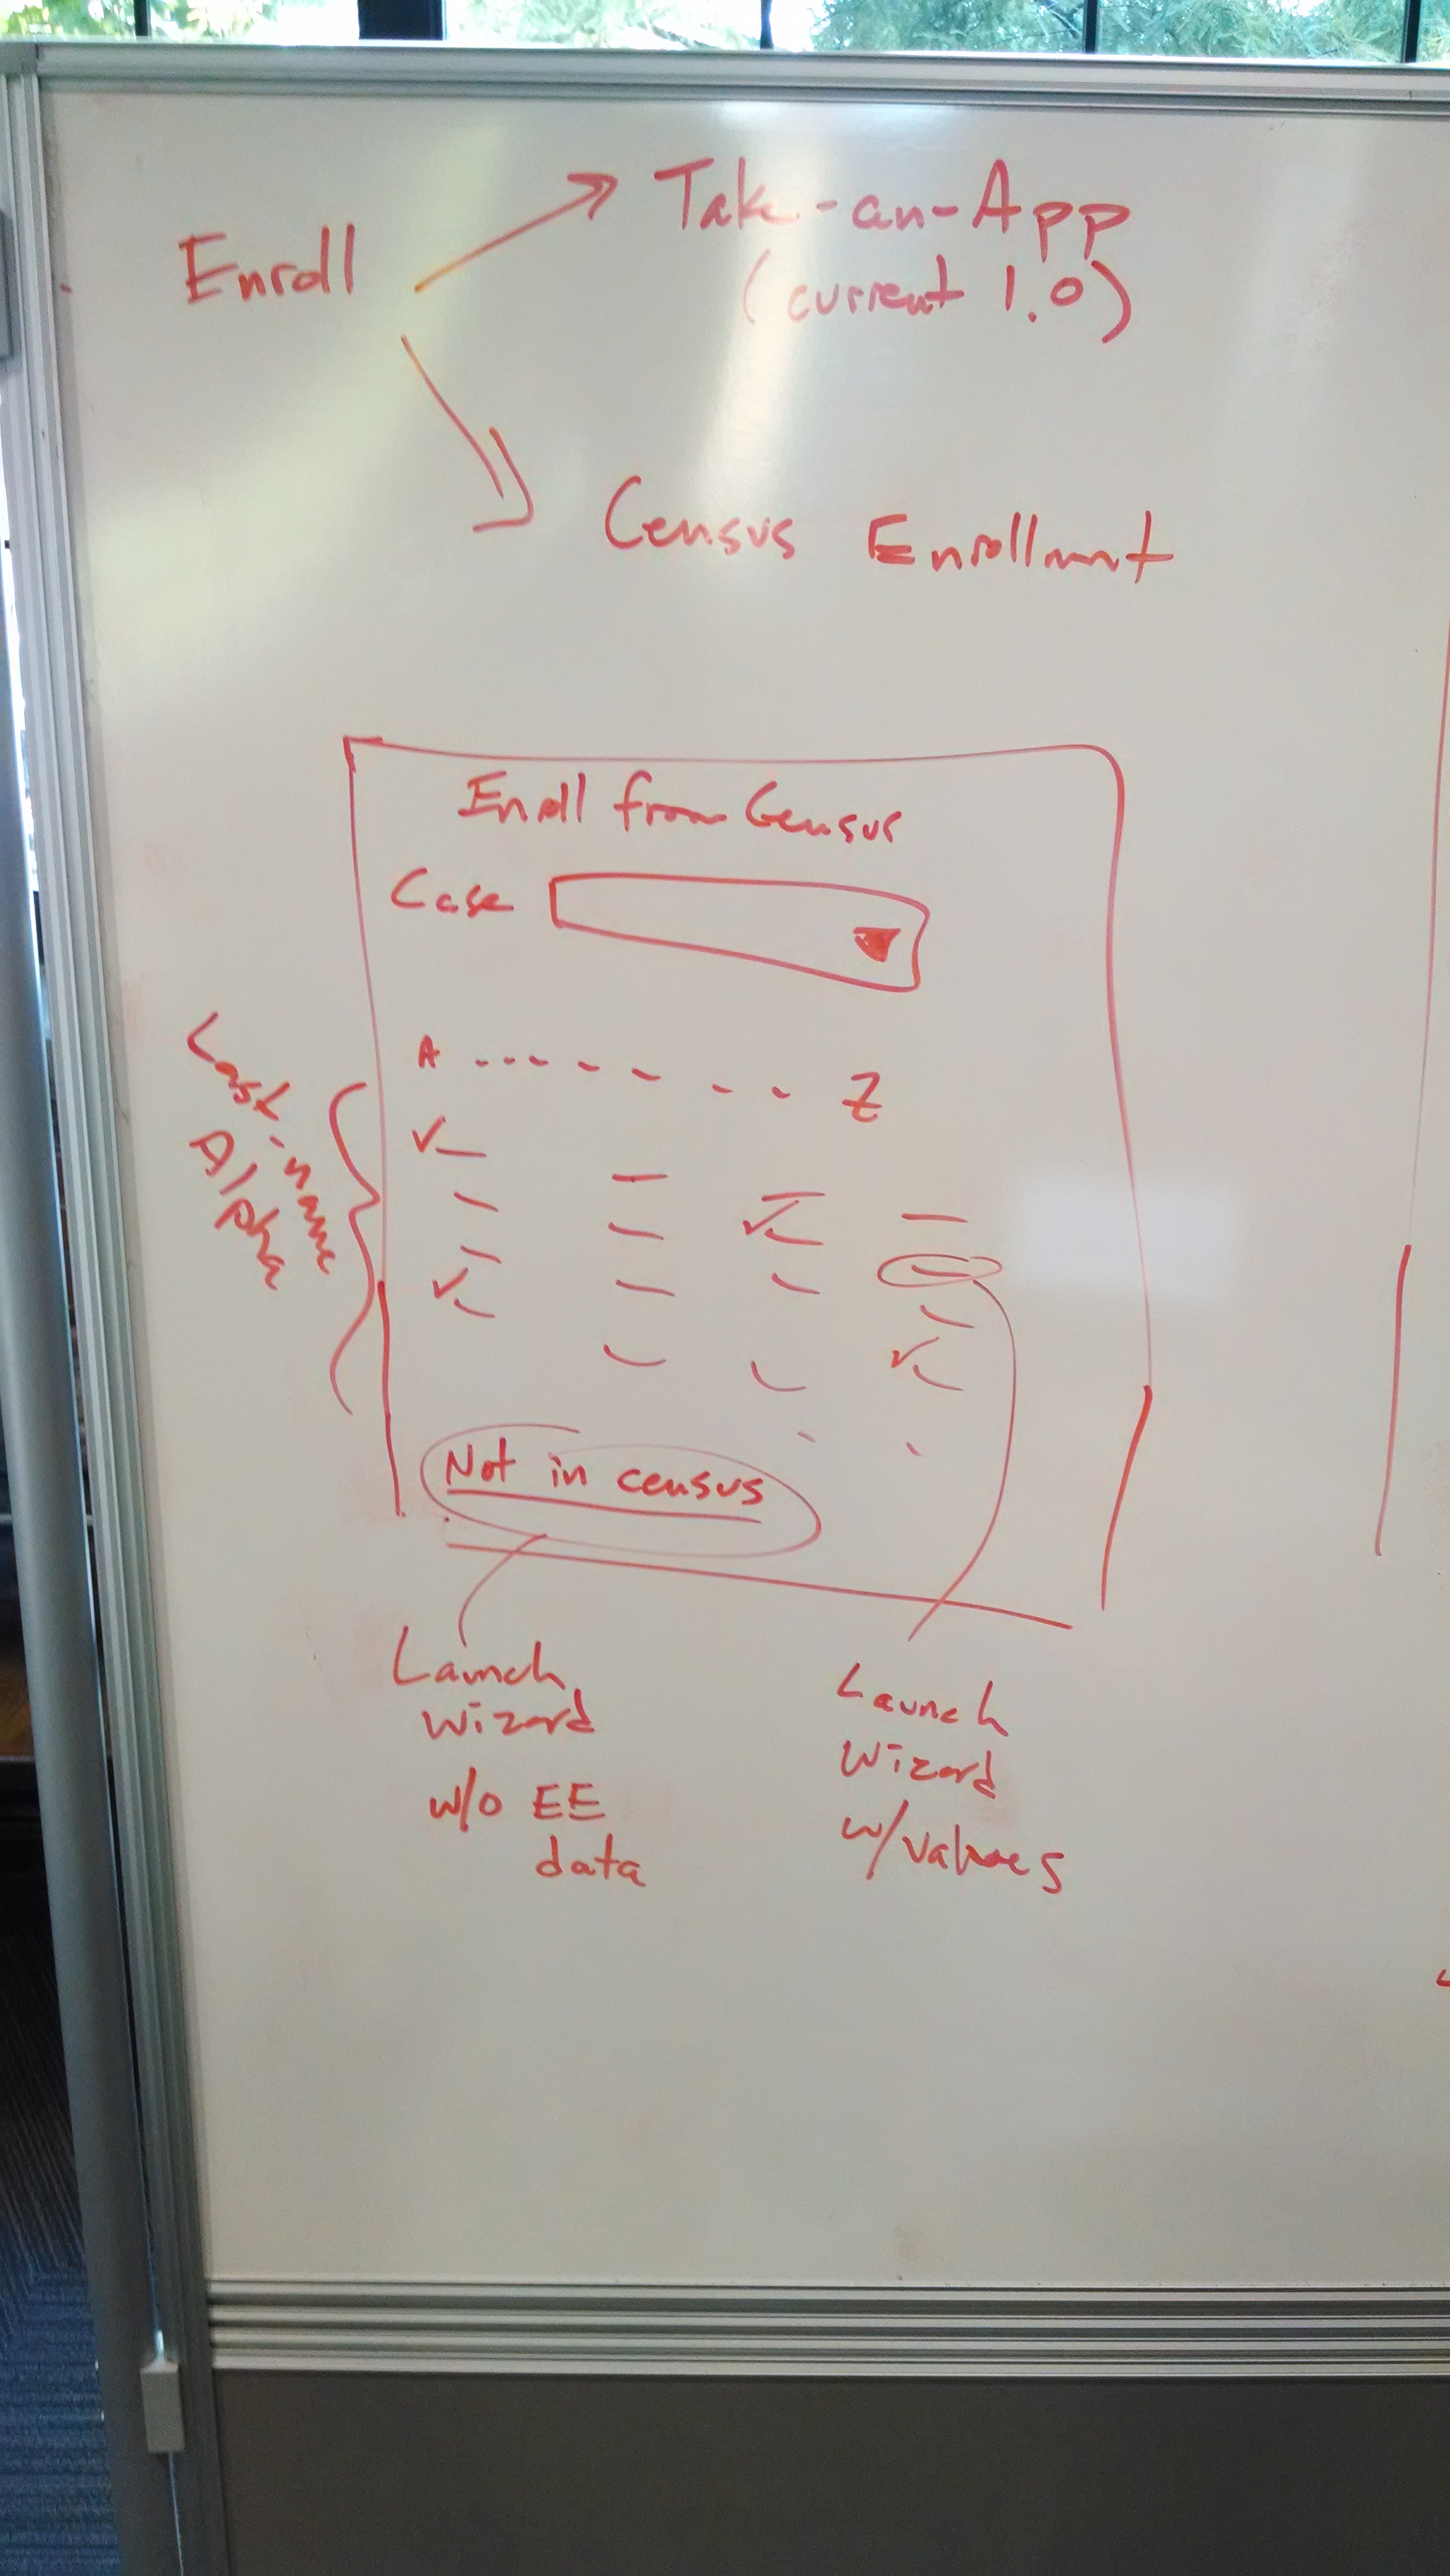 Enroll
Take-an-App
(current 1.0)
Census Enrollment
Enroll from Census
Case
A ---- - - - - Z
Last-name
Alpha
Not in census
Launch
Wizard
w/o EE
data
Launch
Wizard
w/values